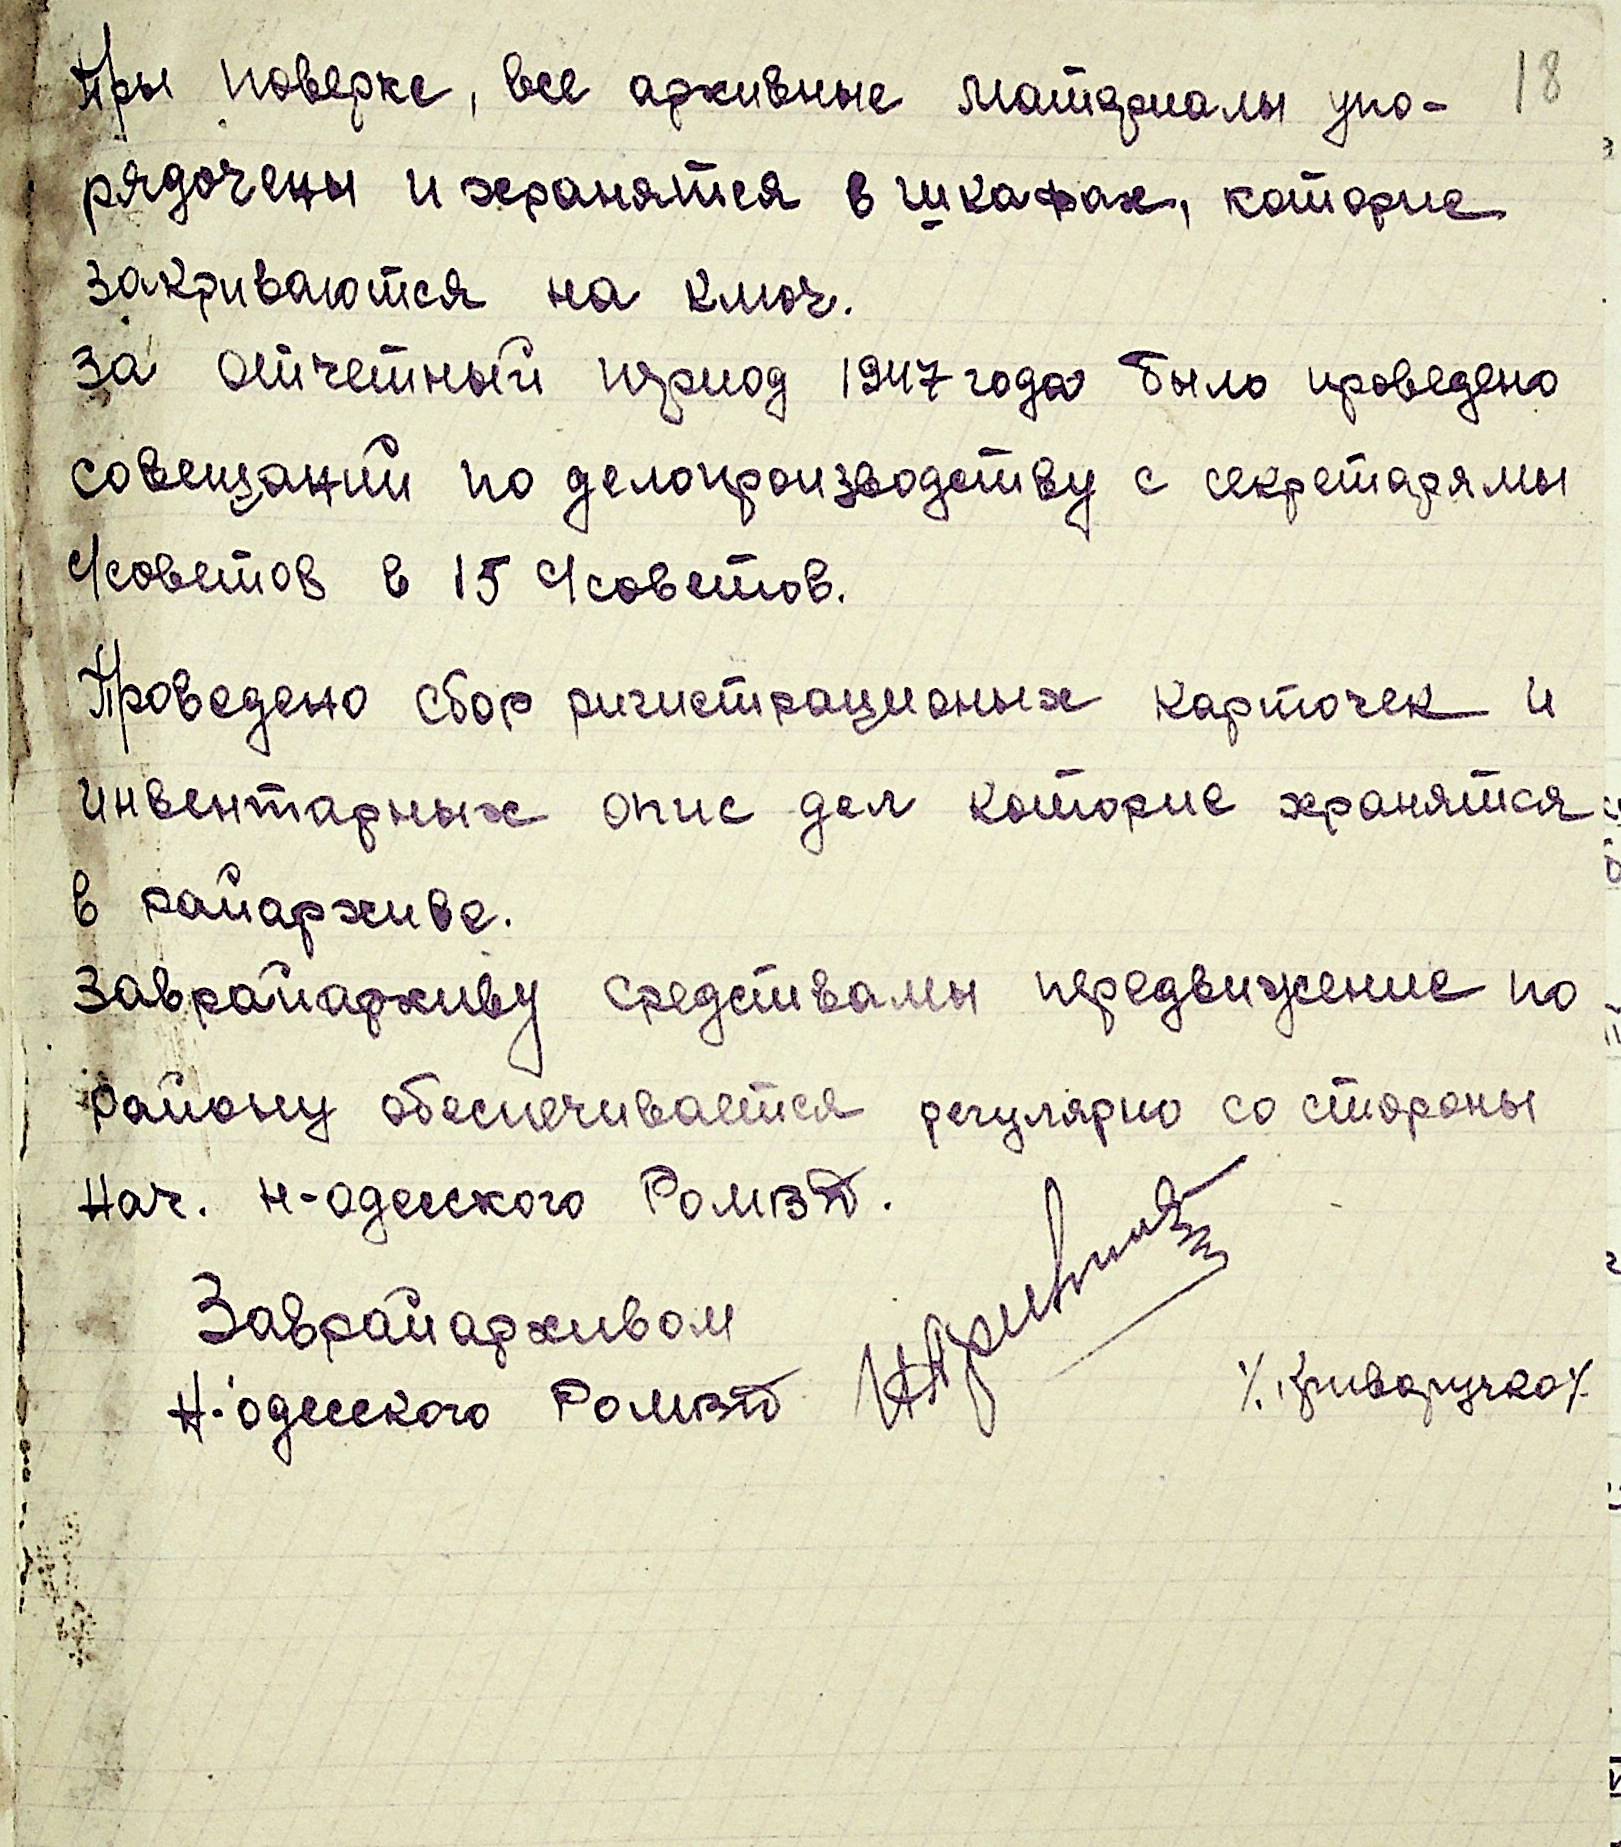 18
Пры поверке, все архивные материалы упо-
рядочены и хранятся в шкафах, которие
закриваются на ключ.
За отчетный период 1947 года было проведено
совещаний по делопроизводству с секретарямы
с/советов в 15 с/советов.
Проведено сбор ригистрационых карточек и
инвентарных опис дел которие хранятся
в райархиве.
Заврайархиву средствамы передвижение по
району обеспечивается регулярно со стороны
нач. н-одесского РОМВД.
Заврайархивом
Н-одесского РОМВД
/. Криваручко /.